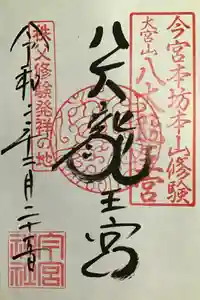 今宮本坊本山修験
大宮山
八大龍王宮
八大龍王宮
秩父修験発祥の地
令和二年二月二十五日
今宮
神社